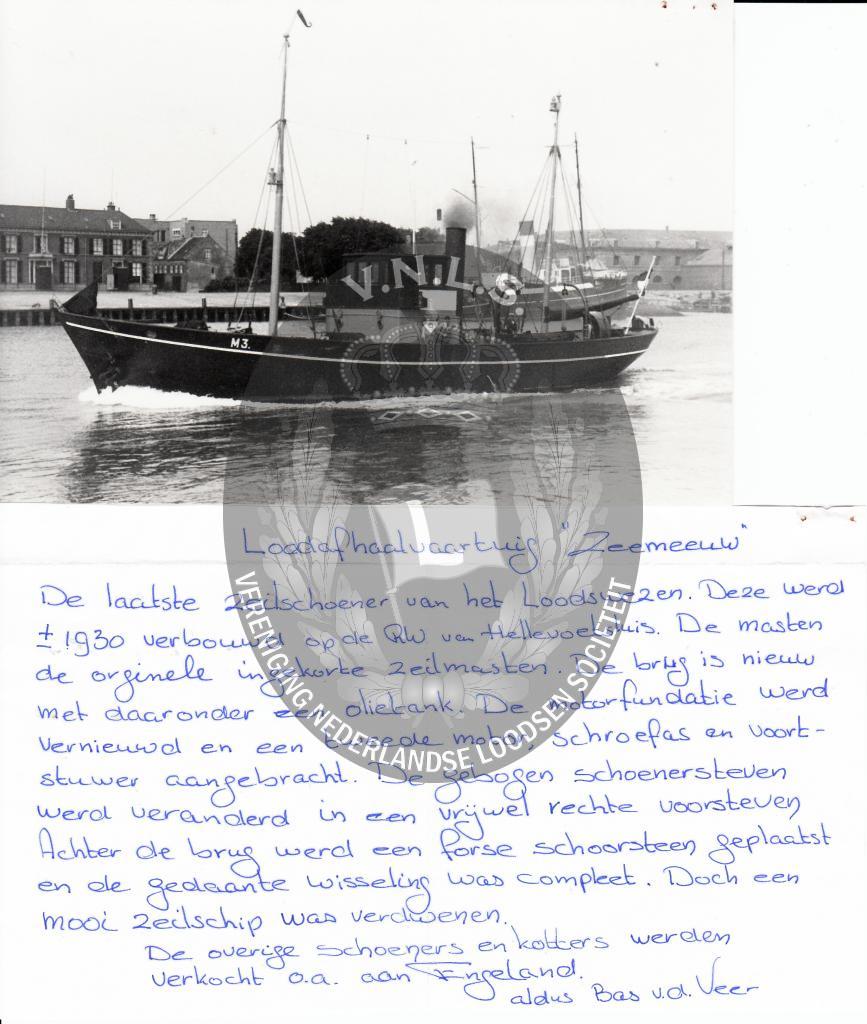 M3.
V.N.L.S
Loodsafhaalvaartuig "Zeemeeuw"
De laatste zeilschoener van het Loodswezen. Deze werd
± 1930 verbouwd op de RW van Hellevoetsluis. De masten
de orginele ingekorte zeilmasten. De brug is nieuw
met daaronder een olietank. De motorfundatie werd
vernieuwd en een tweede motor, schroefas en voort-
stuwer aangebracht. De gebogen schoenersteven
werd veranderd in een vrijwel rechte voorsteven
Achter de brug werd een forse schoorsteen geplaatst
en de gedaante wisseling was compleet. Doch een
mooi zeilschip was verdwenen.
De overige schoeners en kotters werden
verkocht o.a. aan Engeland.
aldus Bas v.d. Veer
VERENIGING NEDERLANDSE LOODSEN SOCIETEIT